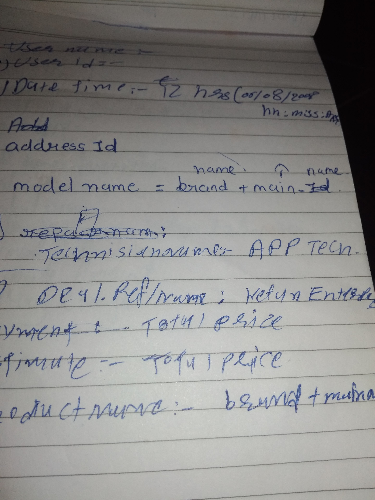 User name :-
User id :-
Date time :- 12 hrs (05/08/2008
hh:miss:
Add
address Id
name ↑ name
model name = brand + main-Id
:
Technisian name:- APP Tech.
Deal. Ref/name :
yment : - Total price
timate :- Total price
oductname :- brand + main